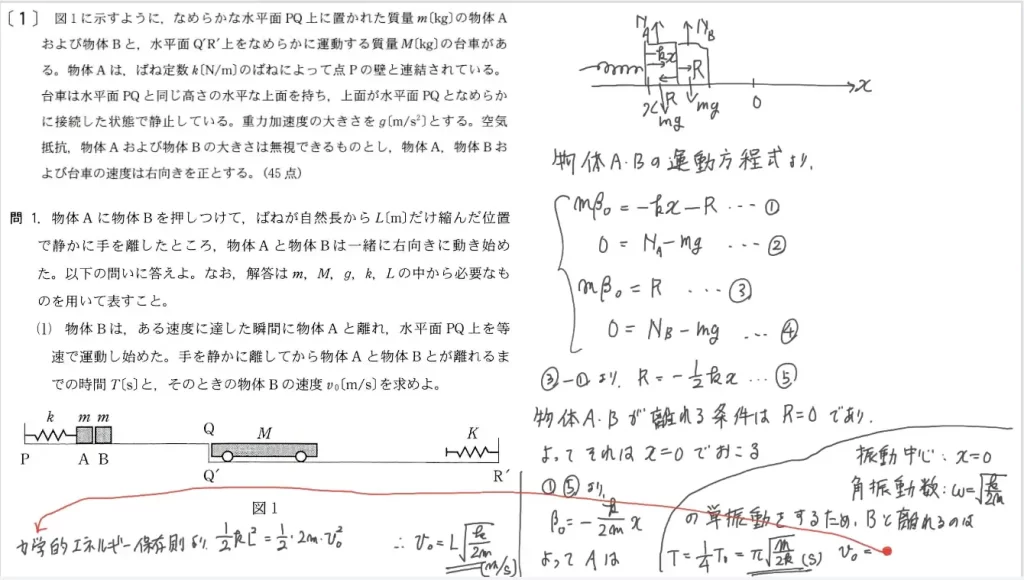 〔1〕 図1に示すように，なめらかな水平面PQ上に置かれた質量m〔kg〕の物体A
および物体Bと，水平面Q′R′上をなめらかに運動する質量M〔kg〕の台車があ
る。物体Aは，ばね定数k〔N/m〕のばねによって点Pの壁と連結されている。
台車は水平面PQと同じ高さの水平な上面を持ち，上面が水平面PQとなめらか
に接続した状態で静止している。重力加速度の大きさをg〔m/s²〕とする。空気
抵抗，物体Aおよび物体Bの大きさは無視できるものとし，物体A，物体Bお
よび台車の速度は右向きを正とする。(45点)
問 1．物体Aに物体Bを押しつけて，ばねが自然長からL〔m〕だけ縮んだ位置
で静かに手を離したところ，物体Aと物体Bは一緒に右向きに動き始め
た。以下の問いに答えよ。なお，解答はm，M，g，k，Lの中から必要なも
のを用いて表すこと。
(1) 物体Bは，ある速度に達した瞬間に物体Aと離れ，水平面PQ上を等
速で運動し始めた。手を静かに離してから物体Aと物体Bとが離れるま
での時間T〔s〕と，そのときの物体Bの速度v₀〔m/s〕を求めよ。
k m m Q M K
P A B Q′ R′
図1
力学的エネルギー保存則より 1/2 kL² = 1/2・2m・v₀² ∴ v₀ = L√(k/2m) (m/s)
N_A N_B
kx R
x R mg mg 0 x
物体A・Bの運動方程式より，
mβ₀ = -kx - R … ①
0 = N_A - mg … ②
mβ₀ = R … ③
0 = N_B - mg … ④
③-①より，R = -1/2 kx … ⑤
物体A・Bが離れる条件はR=0であり，
よってそれはx=0でおこる
①⑤より，
β₀ = - k/2m x
よってAは
振動中心：x=0
角振動数：ω=√(k/2m)
の単振動をするため，Bと離れるのは
T = 1/4 T₀ = π√(m/2k) (s) v₀ =